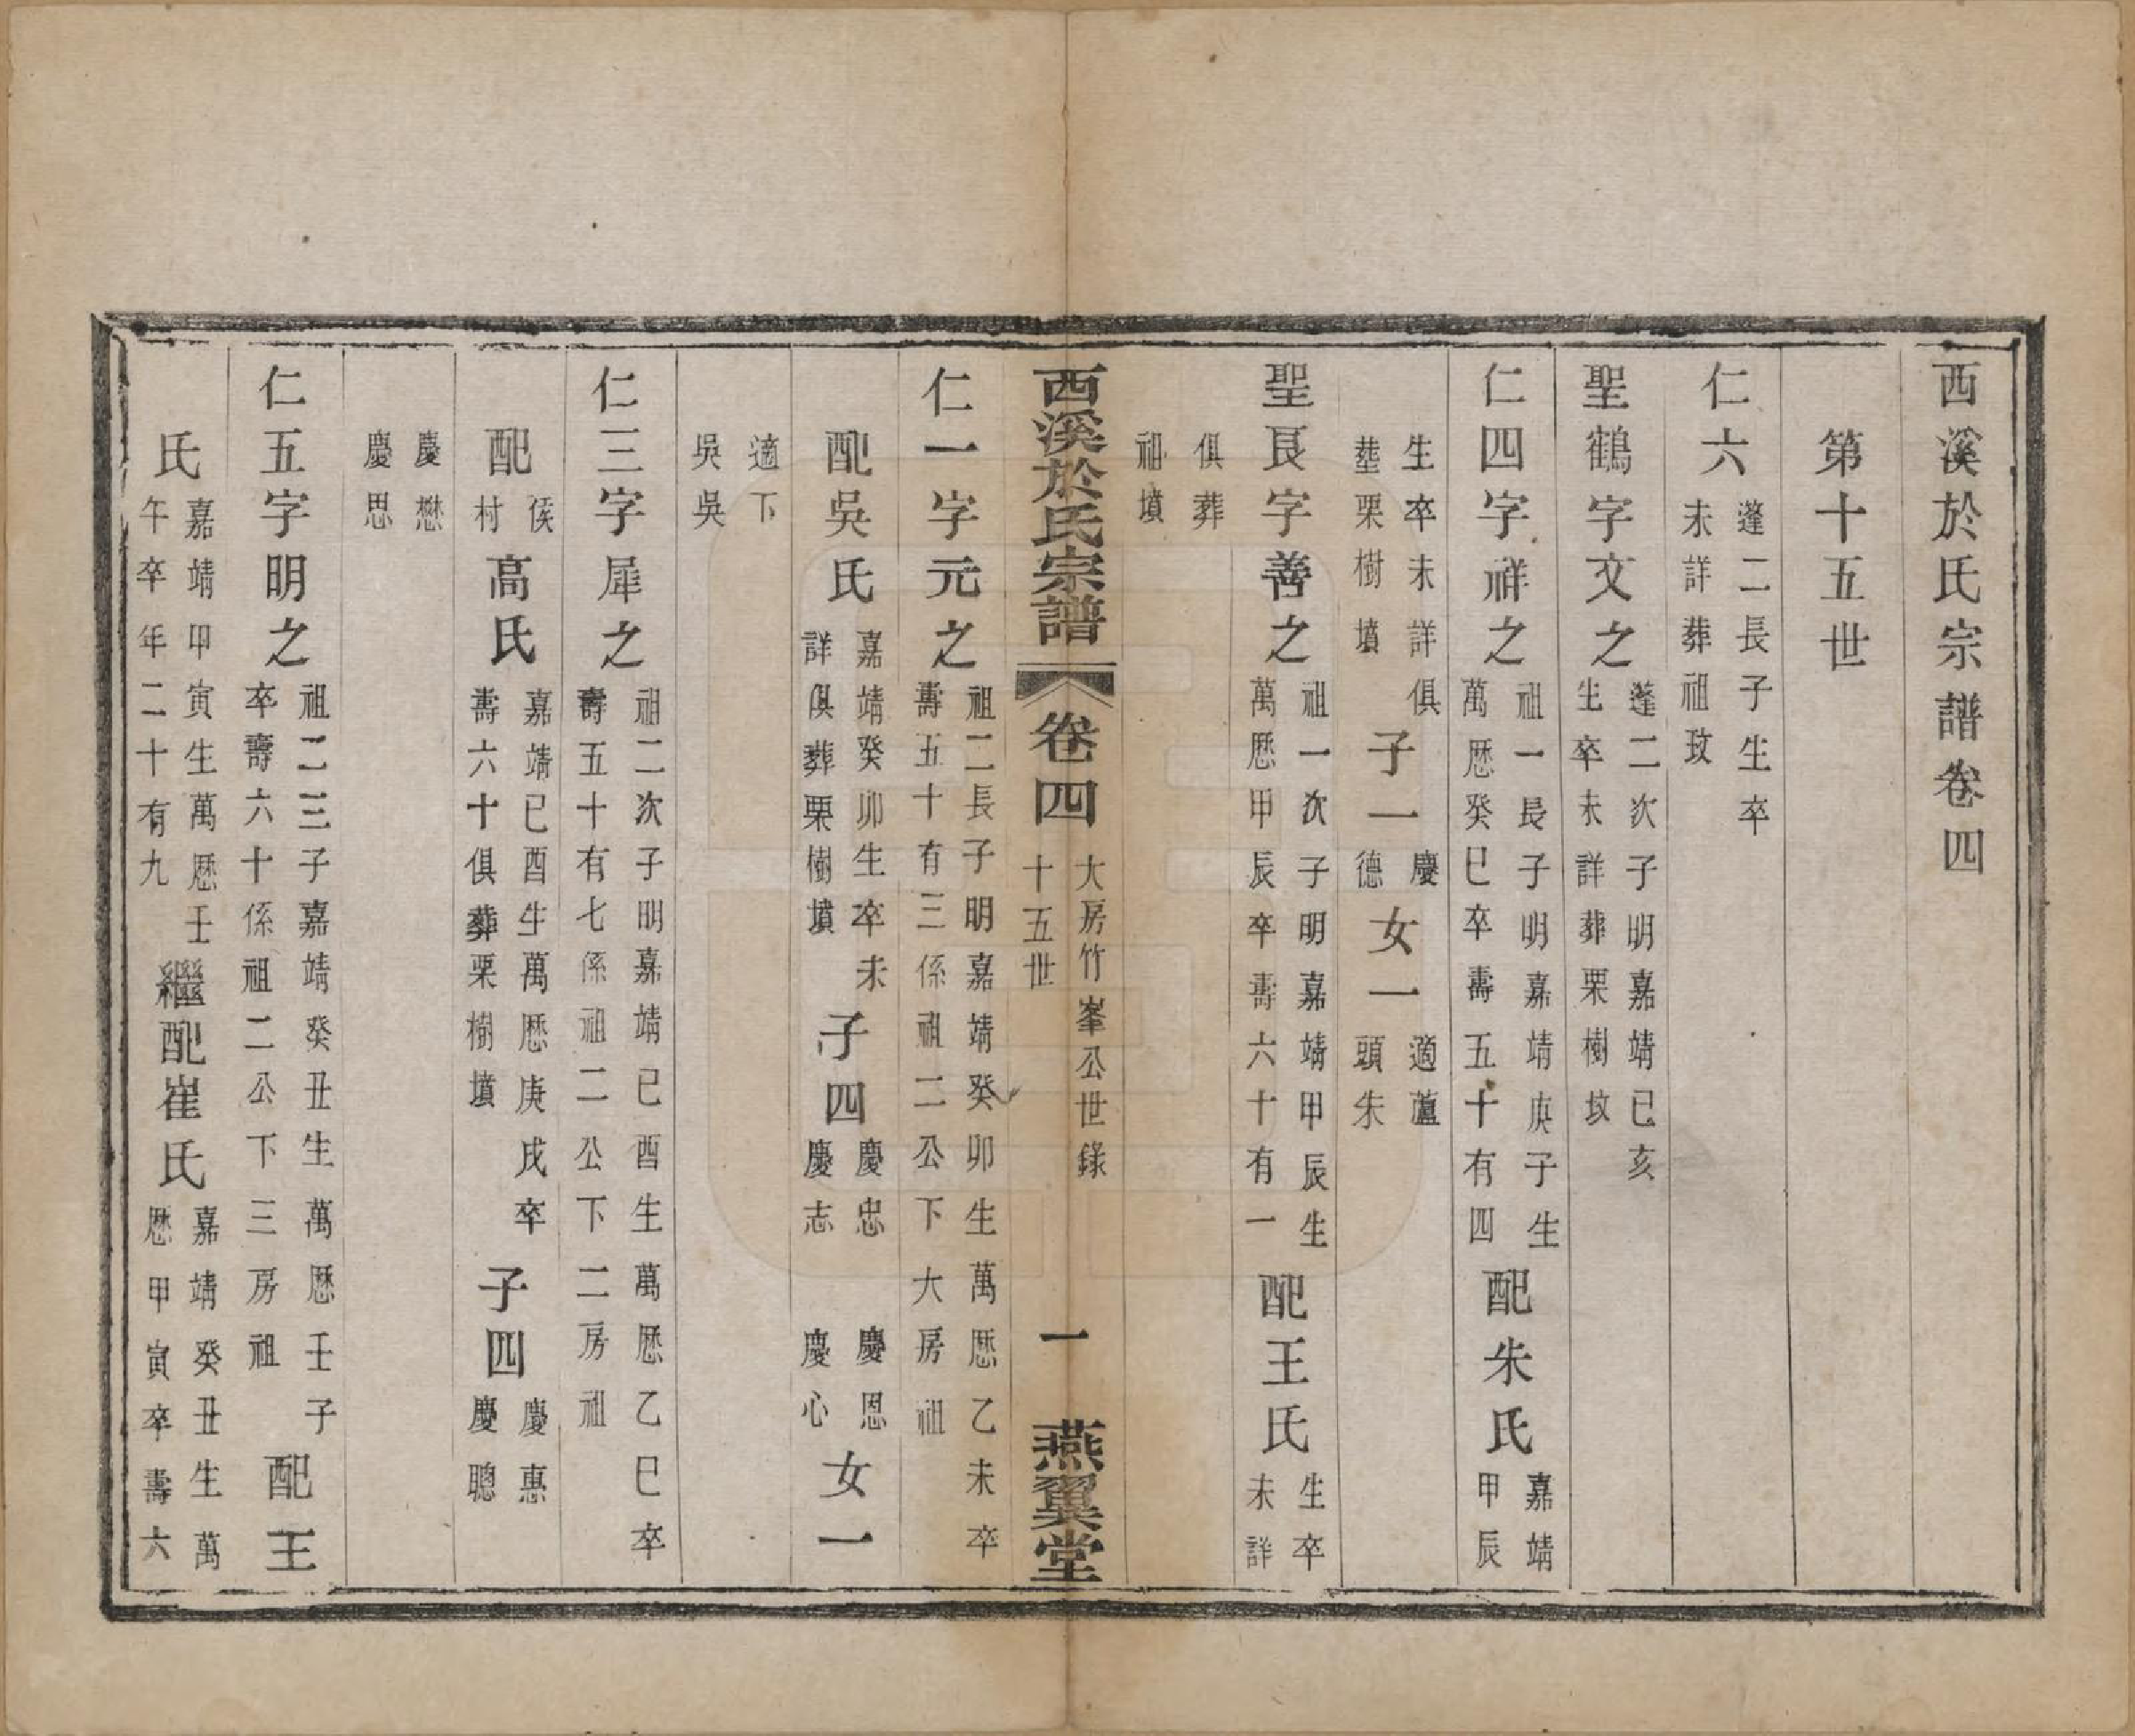 西溪於氏宗譜卷四
第十五世
仁六 蓬二長子生卒未詳葬祖玟
聖鶴字文之 蓬二次子明嘉靖己亥生卒未詳葬栗樹坟
仁四字祥之 祖一長子明嘉靖庚子生萬歷癸巳卒壽五十有四 配朱氏 嘉靖甲辰
生卒未詳俱塟栗樹墳 子一 慶德 女一 適蘆頭朱
聖艮字善之 祖一次子明嘉靖甲辰生萬歷甲辰卒壽六十有一 配王氏 生卒未詳
俱葬祖墳
西溪於氏宗譜 卷四 大房竹峯公世錄 十五世 一 燕翼堂
仁一字元之 祖二長子明嘉靖癸卯生萬歷乙未卒壽五十有三係祖二公下大房祖
配吳氏 嘉靖癸卯生卒未詳俱葬栗樹墳 子四 慶忠 慶志 慶恩 慶心 女一
適下吳吳
仁三字犀之 祖二次子明嘉靖己酉生萬歷乙巳卒壽五十有七係祖二公下二房祖
配 侯村 高氏 嘉靖己酉生萬歷庚戌卒壽六十俱葬栗樹墳 子四 慶惠 慶聰
慶懋 慶思
仁五字明之 祖二三子嘉靖癸丑生萬歷壬子卒壽六十係祖二公下三房祖 配王
氏 嘉靖甲寅生萬歷壬午卒年二十有九 繼配崔氏 嘉靖癸丑生萬歷甲寅卒壽六